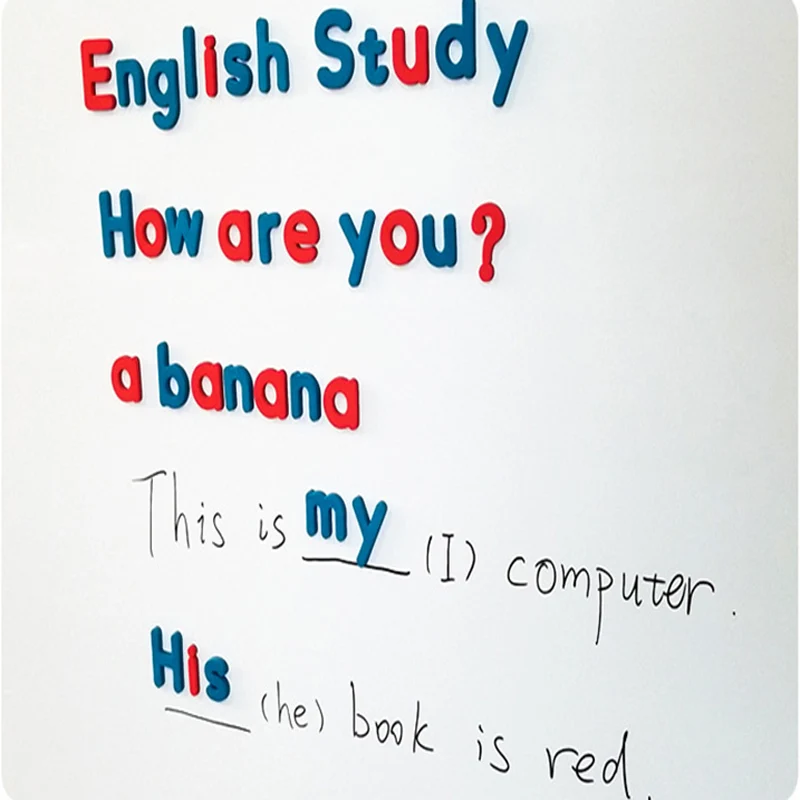 English Study
How are you?
a banana
This is my (I) computer.
His (he) book is red.